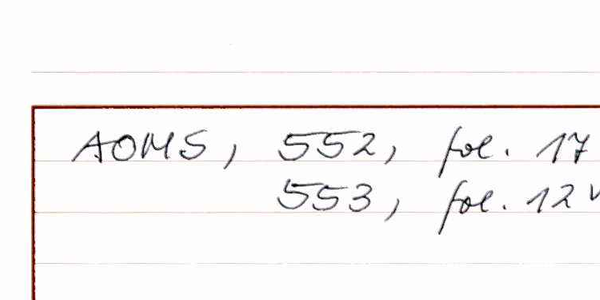 AOMS, 552, fol. 17
553, fol. 12v